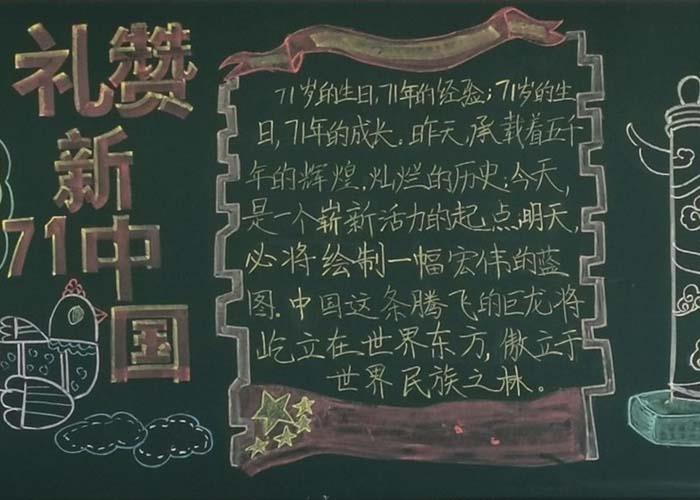 礼赞
新
71中
国
71岁的生日,71年的经验;71岁的生
日,71年的成长。昨天,承载着五千
年的辉煌,灿烂的历史;今天,
是一个崭新活力的起点,明天,
必将绘制一幅宏伟的蓝
图.中国这条腾飞的巨龙将
屹立在世界东方,傲立于
世界民族之林。